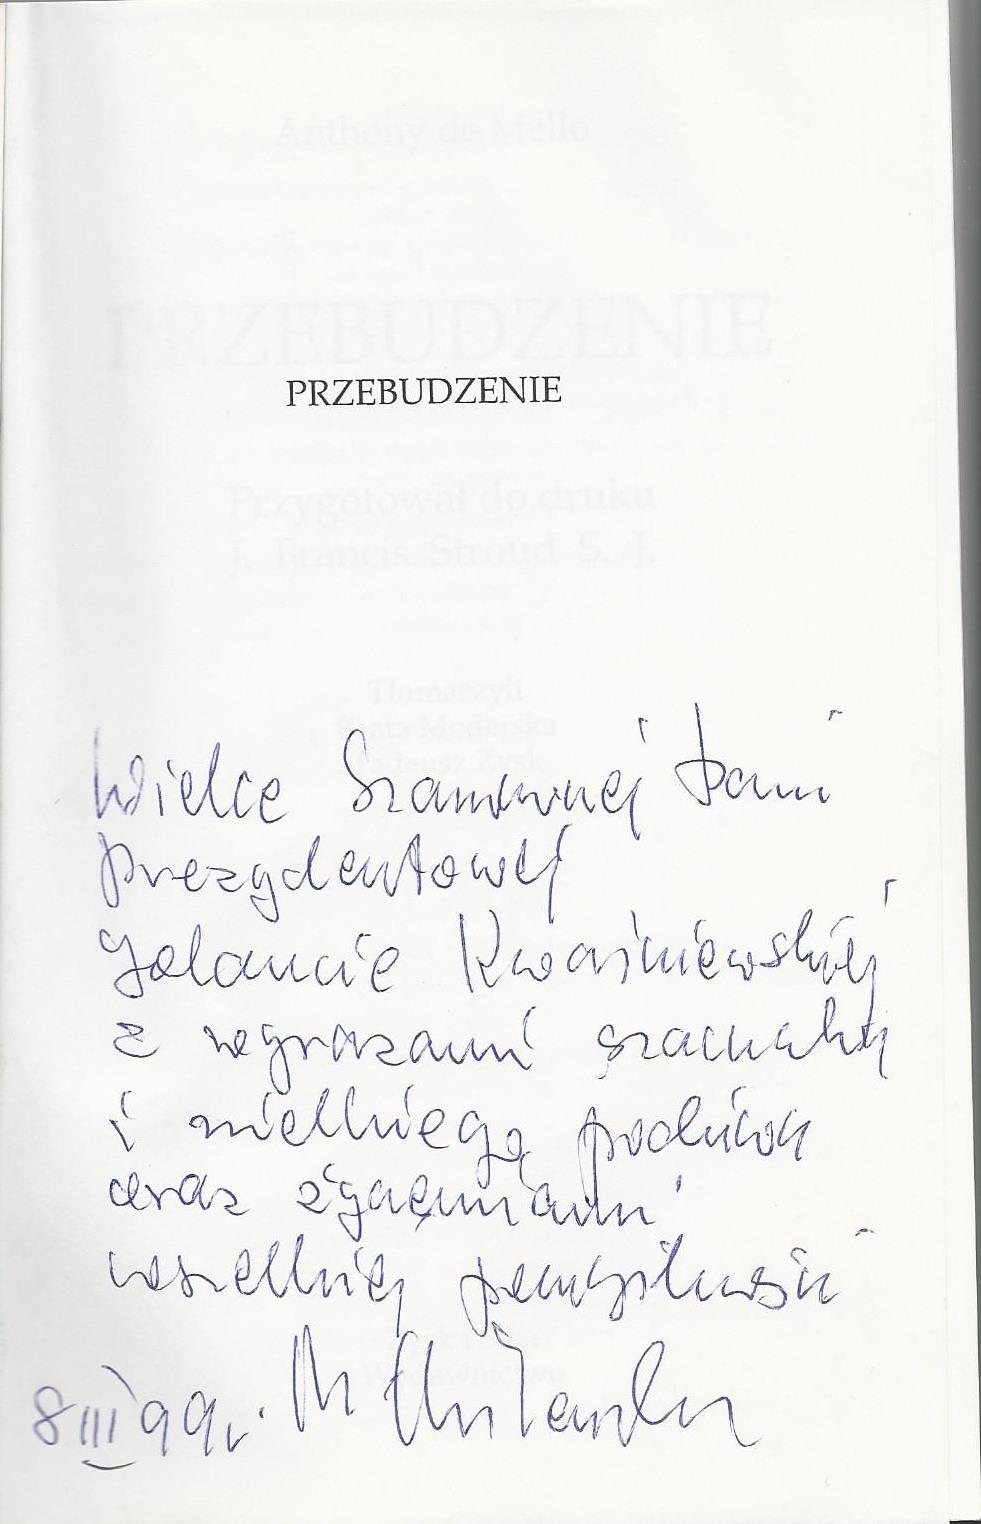 Anthony de Mello
PRZEBUDZENIE
PRZEBUDZENIE
Przygotował do druku
J. Francis Stroud S. J.
Tłumaczyli
Beata Moderska
Tadeusz Zysk
Wielce Szanownej Pani
Prezydentowej
Jolancie Kwaśniewskiej
z wyrazami szacunku
i wielkiego podziwu
oraz życzeniami
wszelkiej pomyślności
Wydawnictwo
8 III 99r.